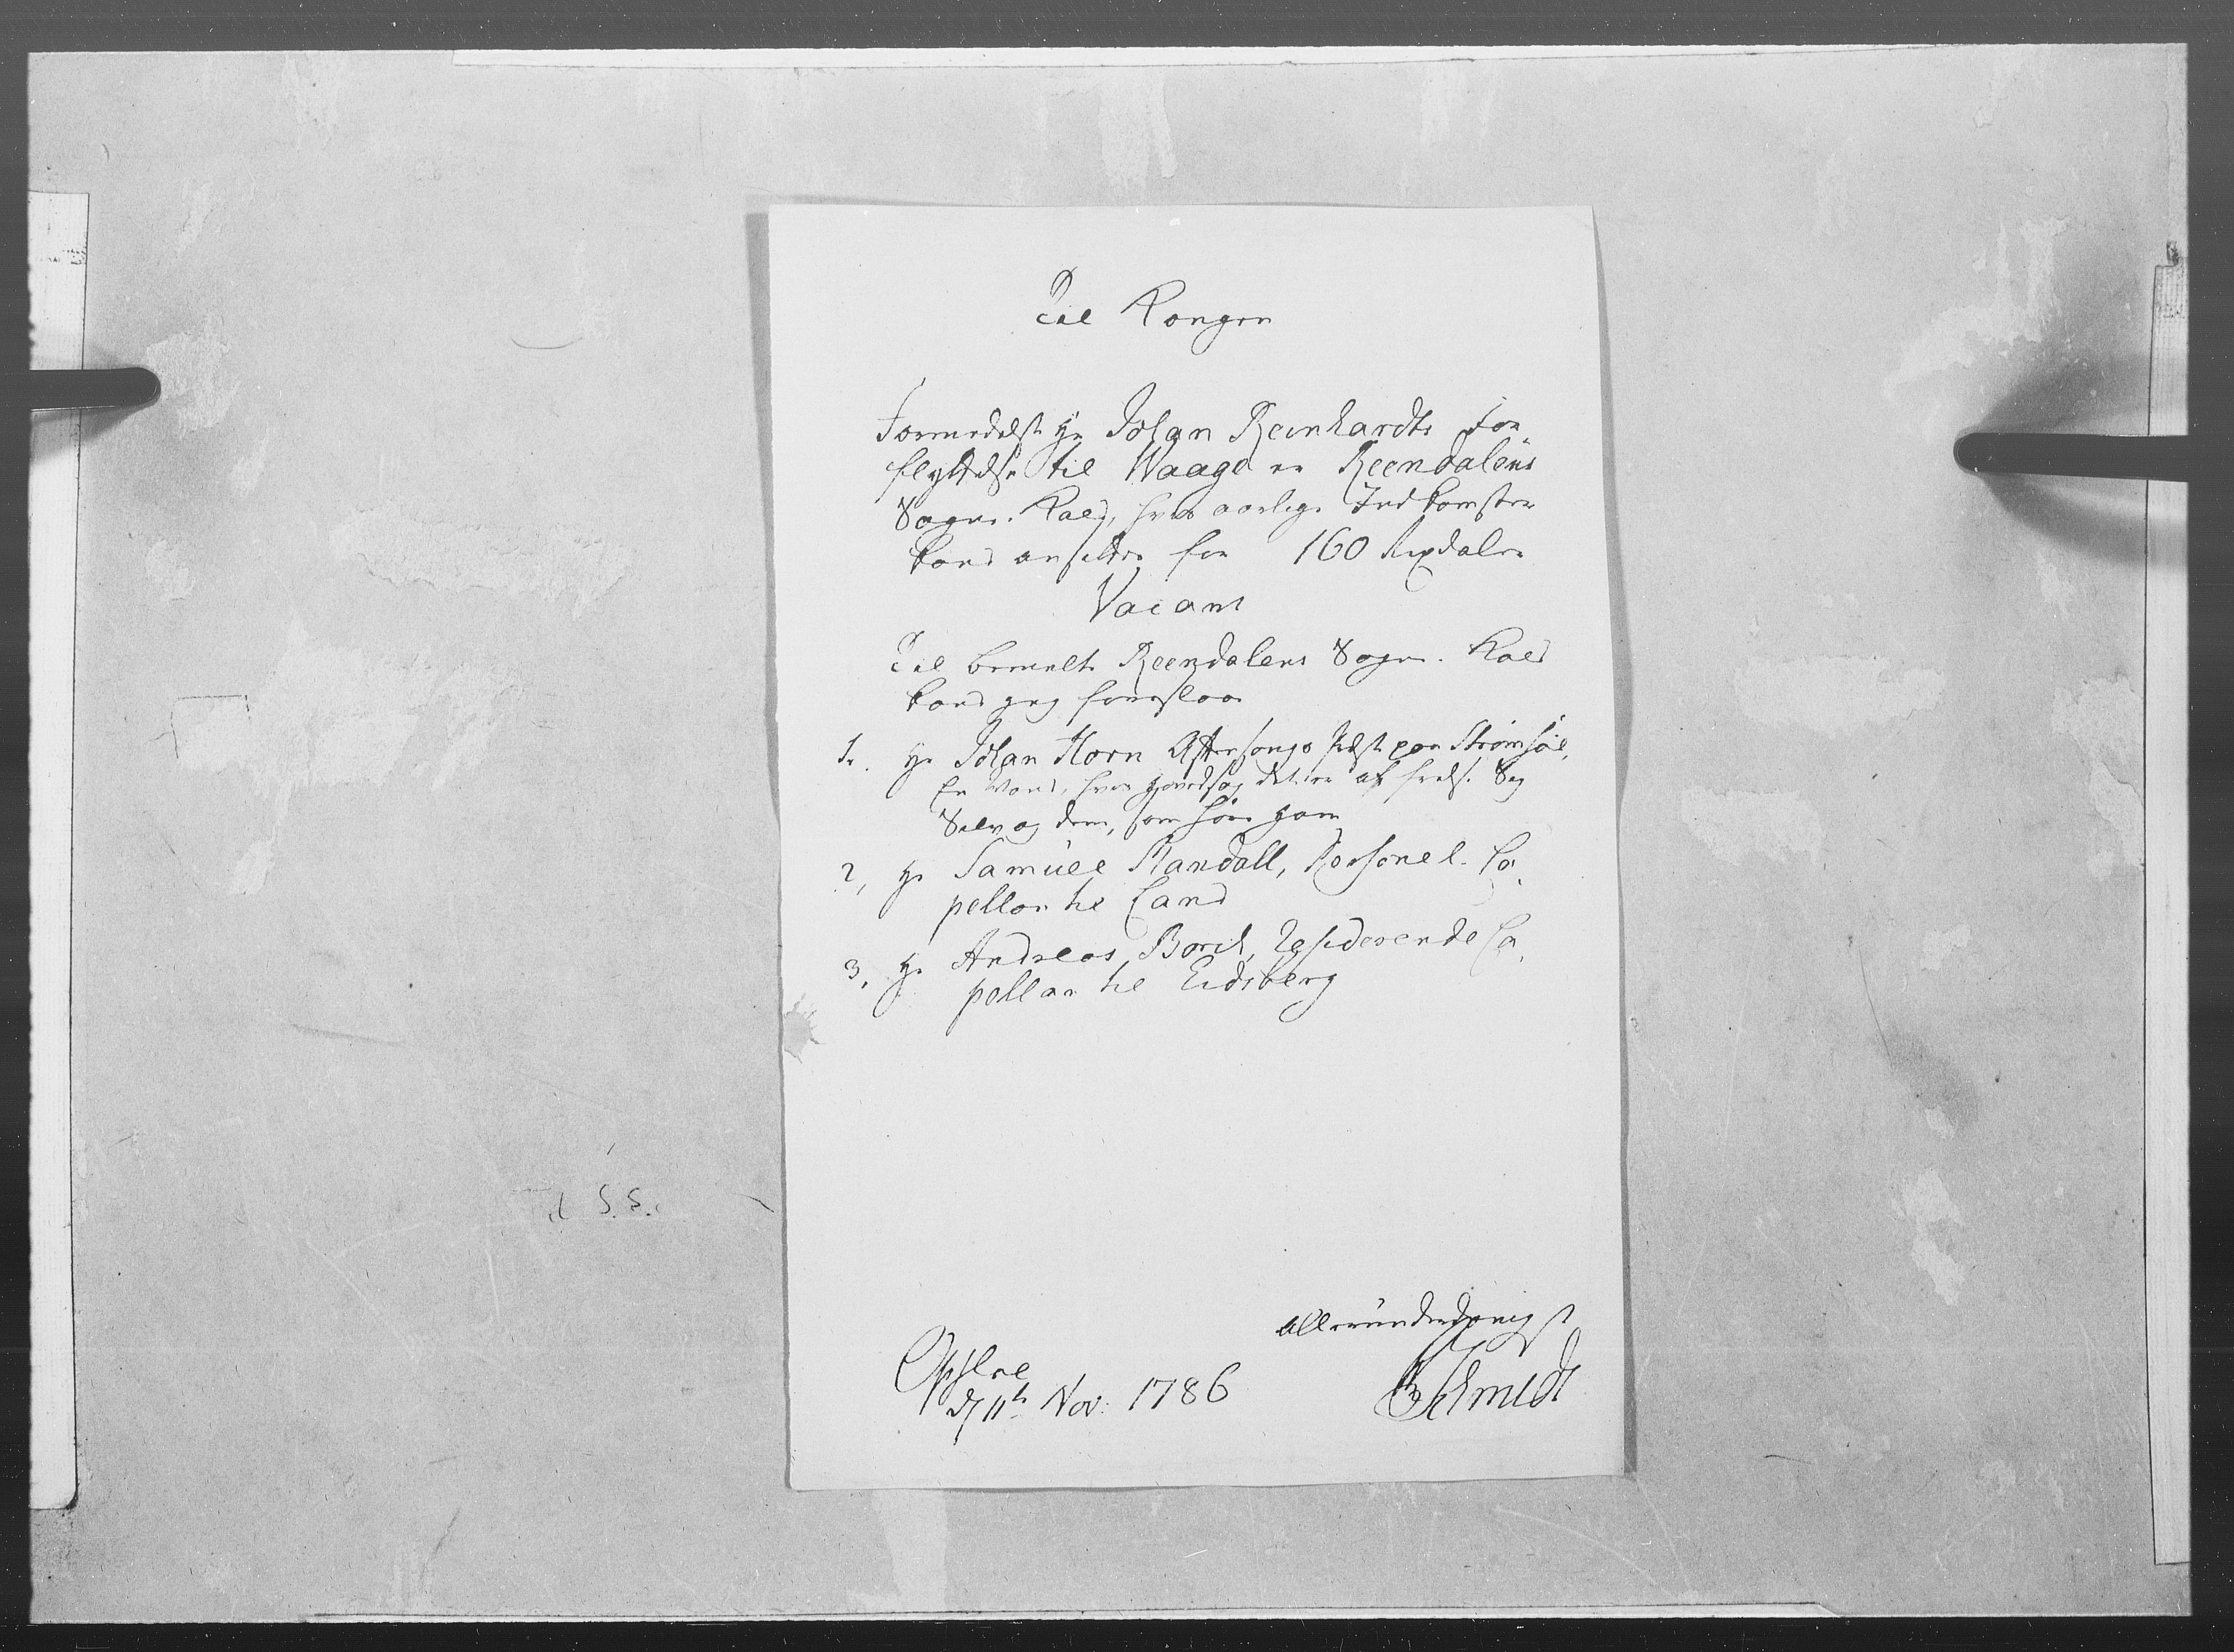 Til Kongen
Formedelst Hr Johan Reinhardts For
flyttelse til Waage er Reendalens
Sogne-Kald, hvis aarlige Indkomster
kand ansættes for 160 Rixdaler
Vacant
Til bemelte Reendalens Sogne-Kald
kand jeg foreslaae
1. Hr Johan Horn Aftensangs Præst paa Strømsøe,
En Mand, hvis Hovedsag det er at frelse Sig
Selv og dem, som høre ham
2, Hr Samuel Randall, Personel-Ca
pellan til Land
3, Hr Andreas Borch, Residerende Ca
pellan til Eidsberg
allerunderdanigst
Opsloe
d 11te Nov: 1786
Schmidt